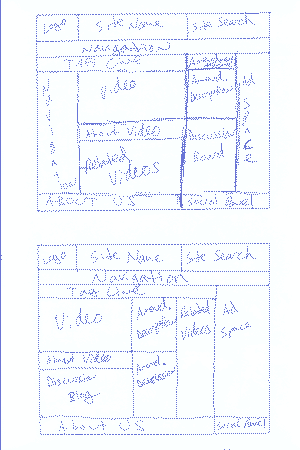 Logo Site Name Site Search
Navigation
Tag Line
Video
Navigation
Annot.
Description
Ad Space
About Video
Related
Videos
Discussion
Board
About Us
Social Panel
Logo Site Name Site Search
Navigation
Tag Line
Video
Annot.
Description
Related
Videos
Ad
Space
About Video
Annot.
Discussion
Blog
About Us
Social Panel